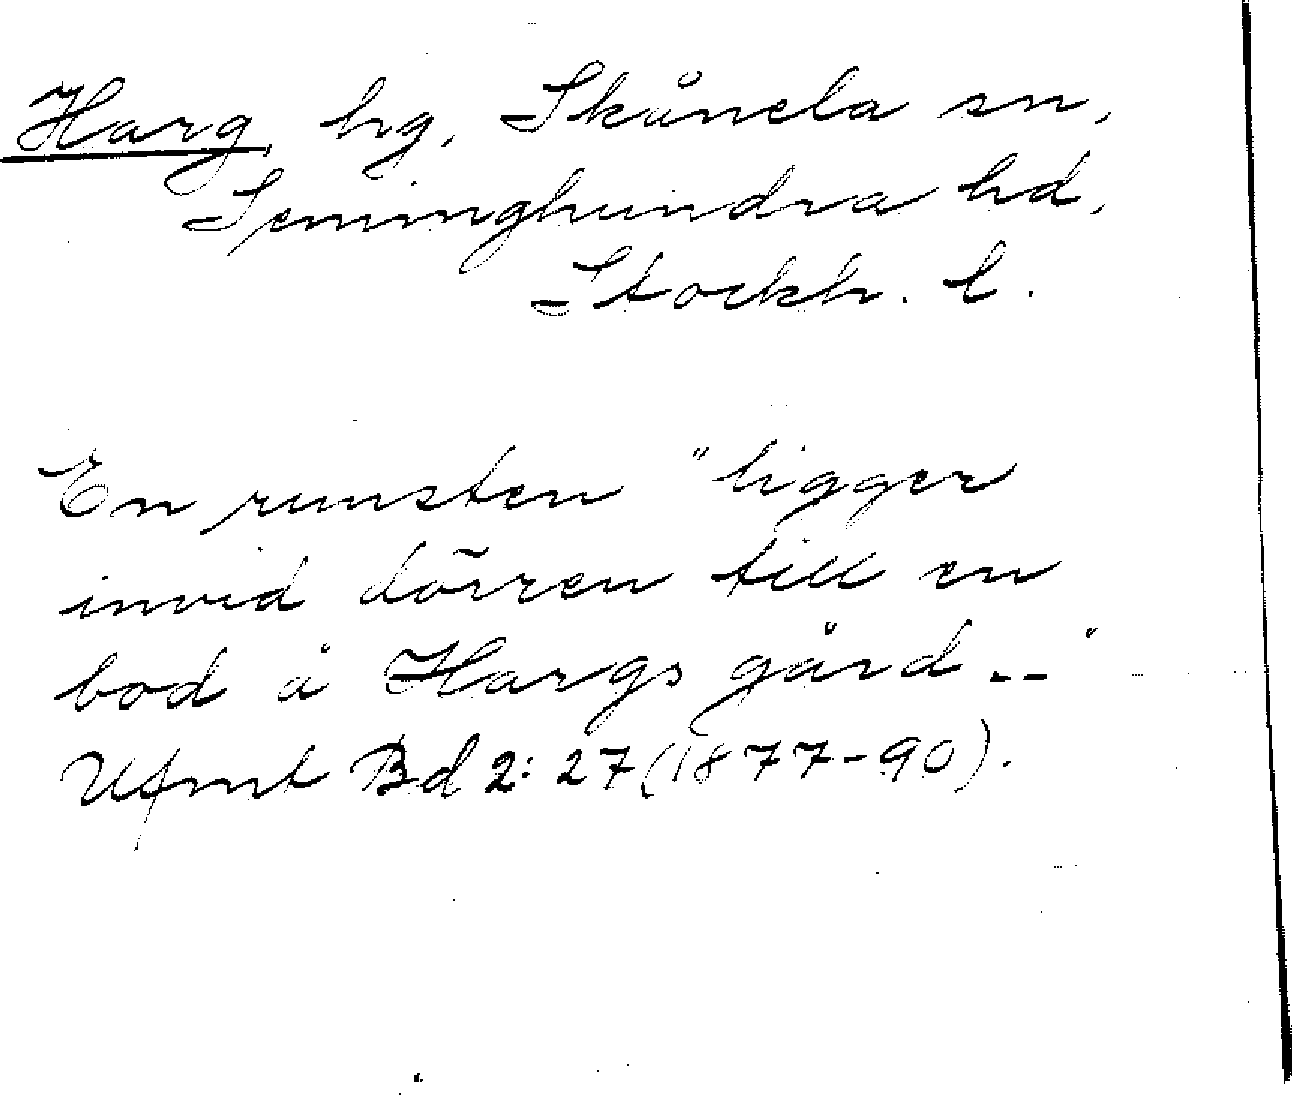 Harg, hg, Skånela sn,
Seminghundra hd,
Stockh. l.
En runsten "ligger
invid dörren till en
bod å Hargs gård --"
Ufmt Bd 2: 27 (1877-90).